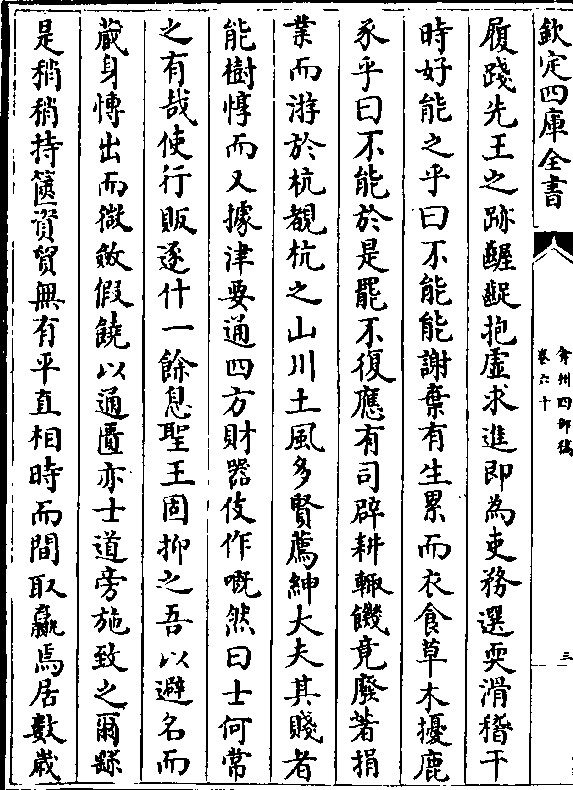 欽定四庫全書
弇州四部稿
卷六十
三
履踐先王之跡齷齪抱虛求進即為吏務選耎滑稽干
時好能之乎曰不能能謝棄有生累而衣食草木擾鹿
豕乎曰不能於是罷不復應有司辟耕輙饑竟廢著捐
業而游於杭覩杭之山川土風多賢薦紳大夫其賤者
能樹惇而又據津要通四方財器伎作嘅然曰士何常
之有哉使行販逐什一餘息聖王固抑之吾以避名而
蔵身慱出而微斂假饒以通匱亦士道旁施致之爾繇
是稍稍持篋資貿無有平直相時而間取贏焉居數歲